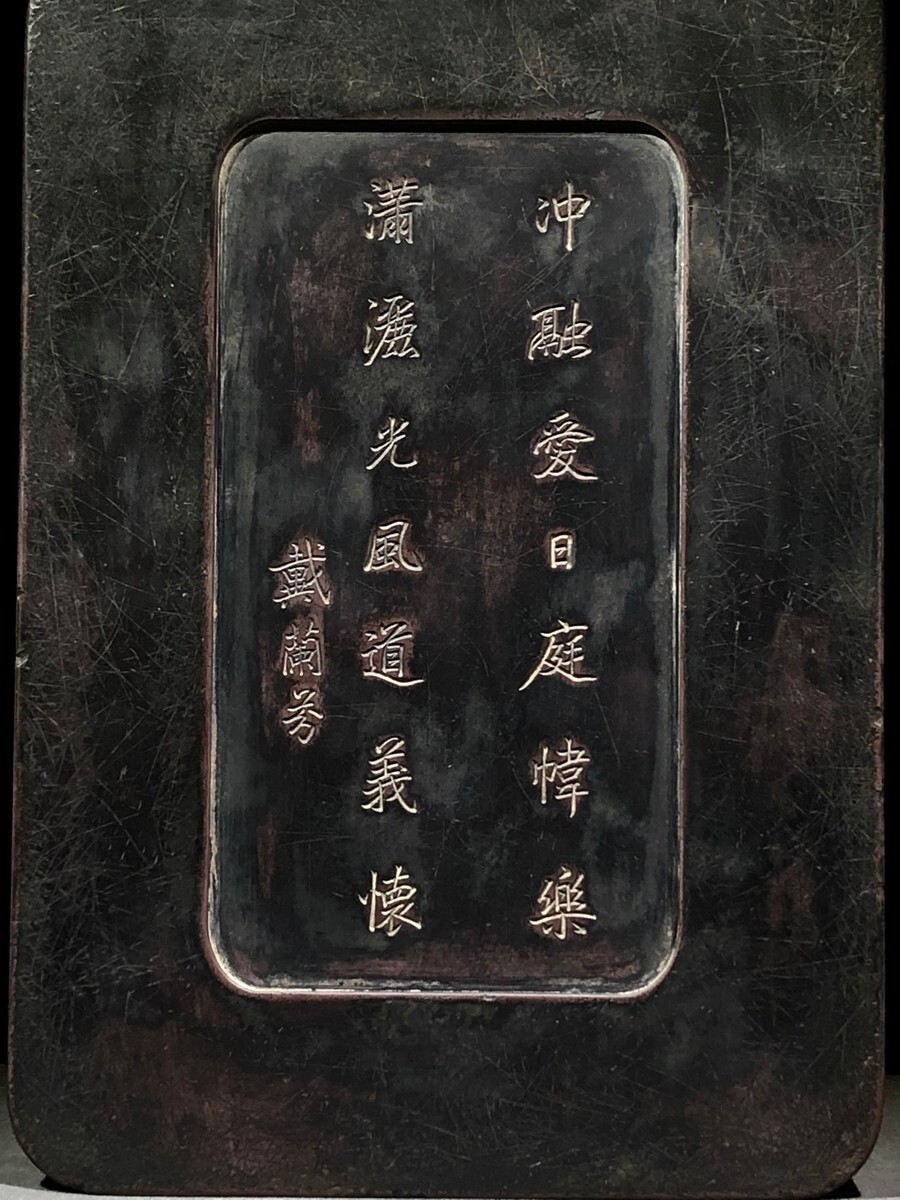 冲融愛日庭幃樂
瀟灑光風道義懷
戴蘭芬